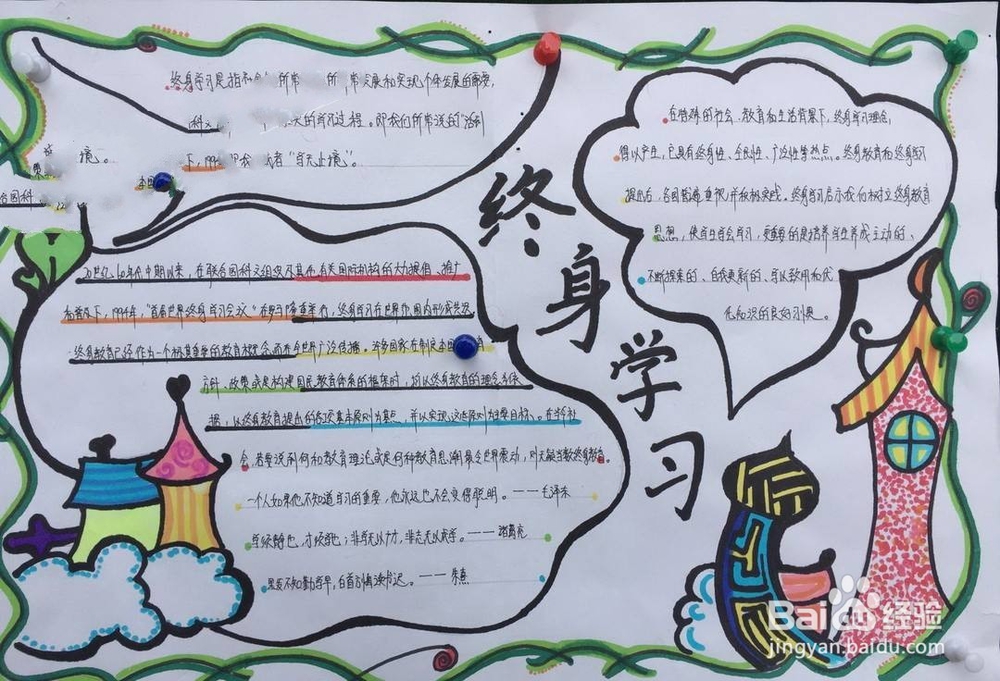 终身学习是指社会 所常 所 常发展和实现个体发展的需要,
的学习过程。即我们所常说的"活到
境。 下,1994 即 或者"学无止境"。
终身学习
20世纪60年代中期以来,在联合国科文组织及其他有关国际机构的大力提倡、推广
和普及下,1994年,"首届世界终身学习会议"在罗马隆重举行,终身学习在世界范围内形成共识
终身教育已经作为一个极其重要的教育概念而在全世界广泛传播。许多国家在制定本国 育
方针、政策或是构建国民教育体系的框架时,均以终身教育的理念为依
据,以终身教育提出的各项基本原则为基点,并以实现这些原则为主要目标。在当今社
会,若要说到何种教育理论或是何种教育思潮最令世界震动,则无疑当数终身教育。
一个人如果他不知道学习的重要,他永远也不会变得聪明。——毛泽东
学须静也,才须学也;非学无以广才,非志无以成学。——诸葛亮
黑发不知勤学早,白首方悔读书迟。——朱熹
在特殊的社会、教育和生活背景下,终身学习理念,
得以产生,它具有终身性、全民性、广泛性等特点。终身教育和终身学习
提出后,各国普遍重视并积极实践。终身学习启示我们树立终身教育
思想,使学生学会学习,更重要的是培养学生养成主动的、
不断探索的、自我更新的、学以致用和优
化知识的良好习惯。
Baidu经验
jingyan.baidu.com